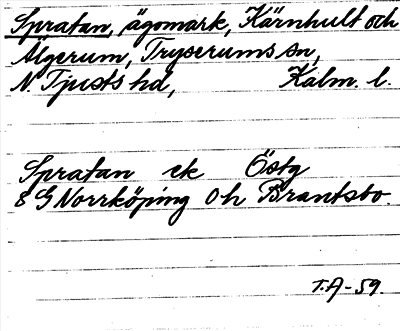 Spratan, ägomark, Kärnhult och
Älgerum, Tryserums sn,
N. Tjusts hd, Kalm. l.
Spratan ek Östg
8 G Norrköping 0 h Brantsbo.
T.A-59